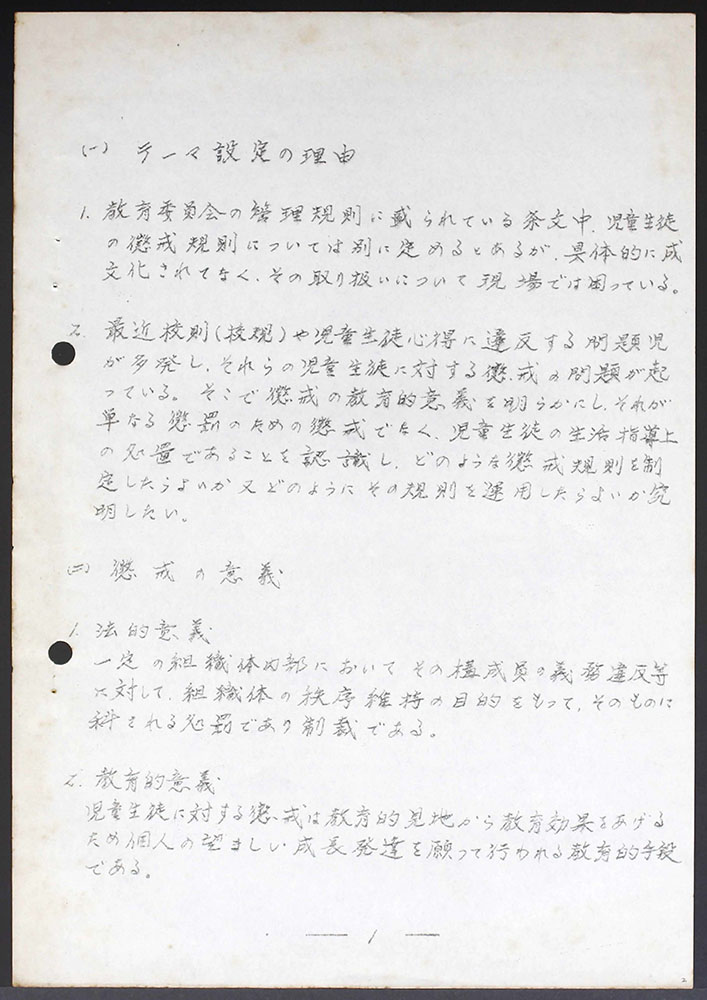 (一) テーマ設定の理由
1. 教育委員会の管理規則に載られている条文中、児童生徒
の懲戒規則については別に定めるとあるが、具体的に成
文化されてなく、その取り扱いについて現場では困っている。
2. 最近校則(校規)や児童生徒心得に違反する問題児
が多発し、それらの児童生徒に対する懲戒の問題が起
っている。そこで懲戒の教育的意義を明らかにし、それが
単なる懲罰のための懲戒でなく、児童生徒の生活指導上
の処置であることを認識し、どのような懲戒規則を制
定したらよいか又どのようにその規則を運用したらよいか究
明したい。
(二) 懲戒の意義
1. 法的意義
一定の組織体内部においてその構成員の義務違反等
に対して、組織体の秩序維持の目的をもって、そのものに
科される処罰であり制裁である。
2. 教育的意義
児童生徒に対する懲戒は教育的見地から教育効果をあげる
ため個人の望ましい成長発達を願って行われる教育的手段
である。
— 1 —
2